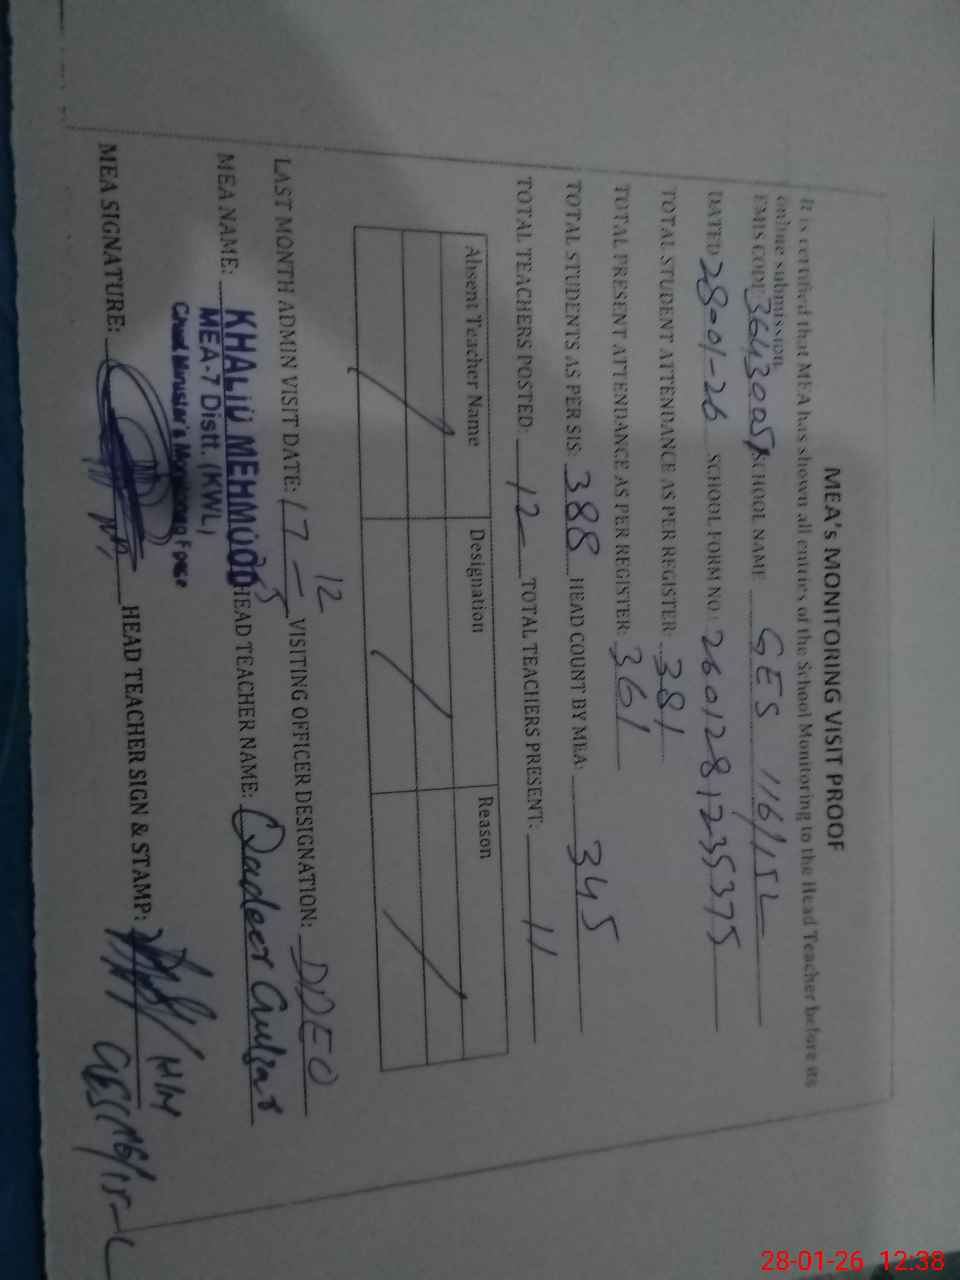 MEA's MONITORING VISIT PROOF
It is certified that MEA has shown all entries of the School Monitoring to the Head Teacher before its
online submission
EMIS CODE 36430057 SCHOOL NAME GES 116/15L
DATED 28-01-26 SCHOOL FORM NO.: 2601281235375
TOTAL STUDENT ATTENDANCE AS PER REGISTER: 381
TOTAL PRESENT ATTENDANCE AS PER REGISTER: 361
TOTAL STUDENTS AS PER SIS: 388 HEAD COUNT BY MEA: 345
TOTAL TEACHERS POSTED: 12 TOTAL TEACHERS PRESENT: 11
Absent Teacher Name Designation Reason
LAST MONTH ADMIN VISIT DATE: 17-12-25 VISITING OFFICER DESIGNATION: DDEO
MEA NAME: KHALID MEHMOOD HEAD TEACHER NAME: Qadeer
MEA-7 Distt. (KWL)
Chief Minister's Monitoring Force
MEA SIGNATURE: HEAD TEACHER SIGN & STAMP: HM
GES 116/15-L
28-01-26 12:38